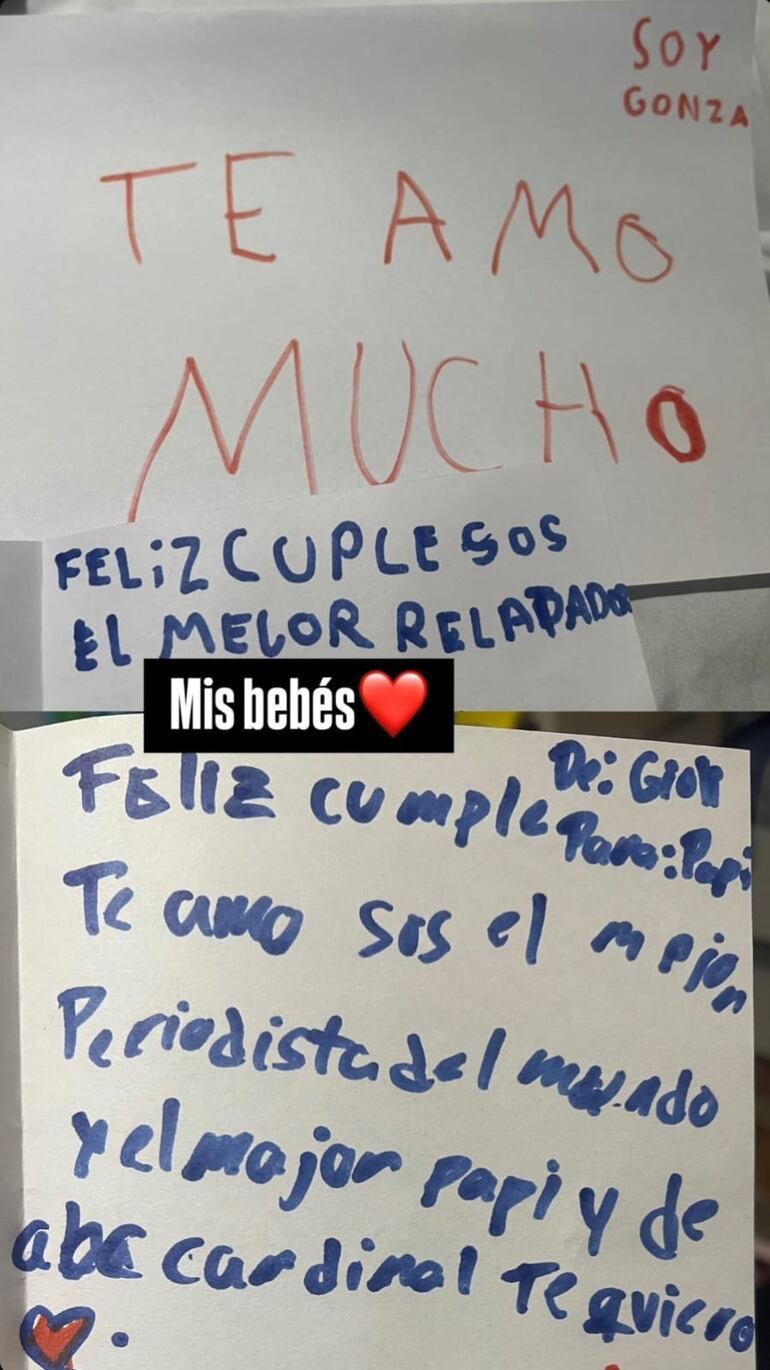 SOY
GONZA
TE AMO
MUCHO
FELiZ CUPLE SOS
EL MELOR RELAPADOR
Mis bebés❤️
Feliz cumple
De:
Para: Papi
Te amo sos el mejor
Periodista del mundo
y el major papi y de
abc cardinal Te quiero